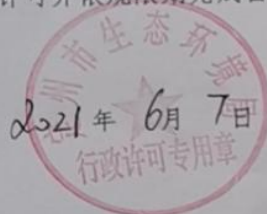 州市生态环境局
2021年 6月 7日
行政许可专用章